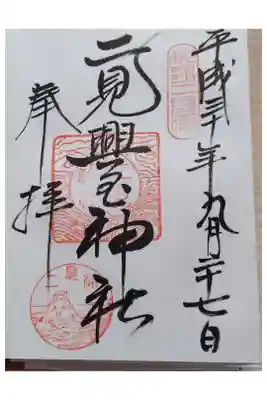 平成三十年九月二十七日
二見興玉神社
奉拝
二見浦